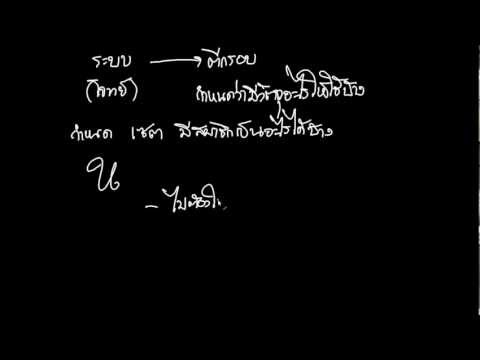 ระบบ → ตีกรอบ
(โจทย์) กำหนดว่ามีวัตถุอะไรให้ใช้บ้าง
กำหนด เซต มีสมาชิกเป็นอะไรได้บ้าง
U
- ไม่